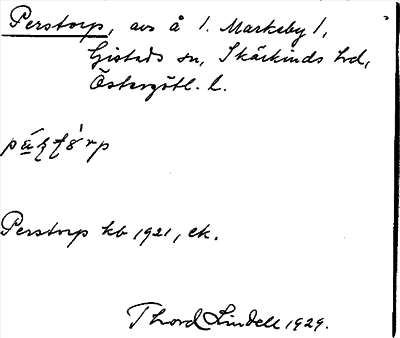 Perstorp, avs å /. Markeby /,
Gistads sn, Skärkinds hd,
Östergötl. l.
Perstorp kb 1921, ek.
Thord Lindell 1929.